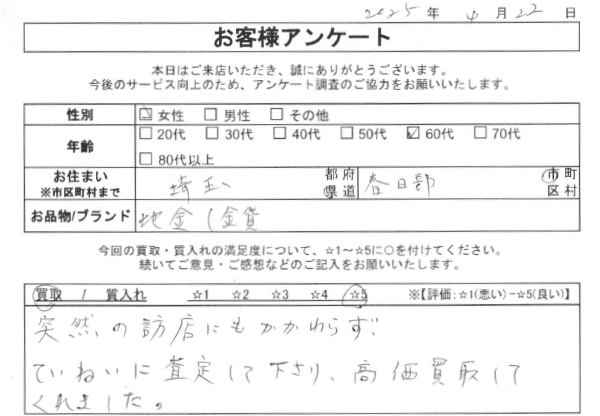 2025年 4月 22日
お客様アンケート
本日はご来店いただき、誠にありがとうございます。
今後のサービス向上のため、アンケート調査のご協力をお願いいたします。
性別 ☑ 女性 □ 男性 □ その他
年齢 □ 20代 □ 30代 □ 40代 □ 50代 ☑ 60代 □ 70代
□ 80代以上
お住まい ※市区町村まで 埼玉 都府県道 春日部 市町区村
お品物/ブランド 地金 金貨
今回の買取・質入れの満足度について、☆1～☆5に○を付けてください。
続いてご意見・ご感想などのご記入をお願いいたします。
買取 / 質入れ ☆1 ☆2 ☆3 ☆4 ☆5 ※【評価:☆1(悪い)-☆5(良い)】
突然の訪店にもかかわらず
ていねいに査定して下さり、高価買取して
くれました。